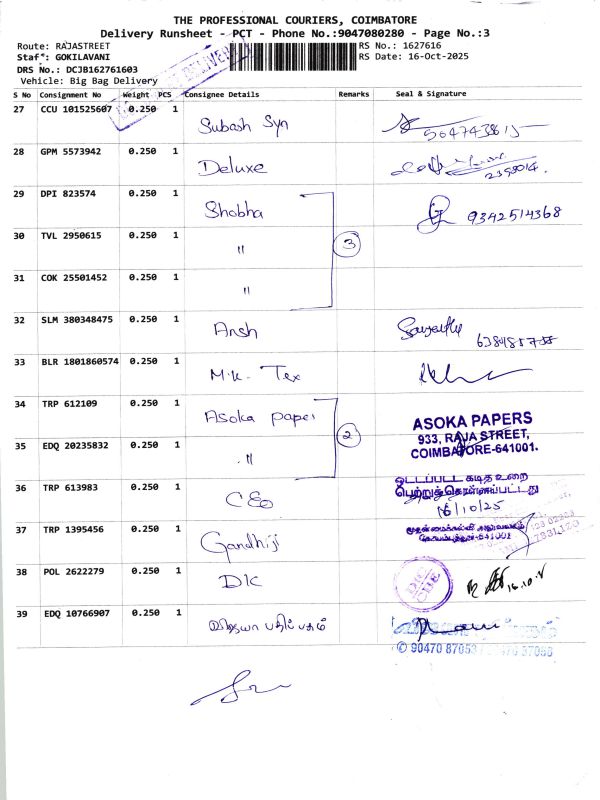 THE PROFESSIONAL COURIERS, COIMBATORE
Delivery Runsheet - PCT - Phone No.:9047080280 - Page No.:3
Route: RAJASTREET RS No.: 1627616
Staf": GOKILAVANI RS Date: 16-Oct-2025
DRS No.: DCJB162761603
Vehicle: Big Bag Delivery
S No Consignment No Weight PCS Consignee Details Remarks Seal & Signature
27 CCU 101525607 0.250 1 Subash Syn
28 GPM 5573942 0.250 1 Deluxe
29 DPI 823574 0.250 1 Shobha 9342514368
30 TVL 2950615 0.250 1 " 3
31 COK 25501452 0.250 1 "
32 SLM 380348475 0.250 1 Ansh
33 BLR 1801860574 0.250 1 M.K. Tex
34 TRP 612109 0.250 1 Asoka paper
ASOKA PAPERS
933, RAJA STREET,
COIMBATORE-641001.
35 EDQ 20235832 0.250 1 " 2
36 TRP 613983 0.250 1 CEO
ஒட்டப்பட்ட கடித உறை
பெற்றுக்கொள்ளப்பட்டது
16/10/25
37 TRP 1395456 0.250 1 Gandhiji
முதன்மைக்கல்வி அலுவலகம்
கோயம்புத்தூர்-641001
38 POL 2622279 0.250 1 DK
39 EDQ 10766907 0.250 1